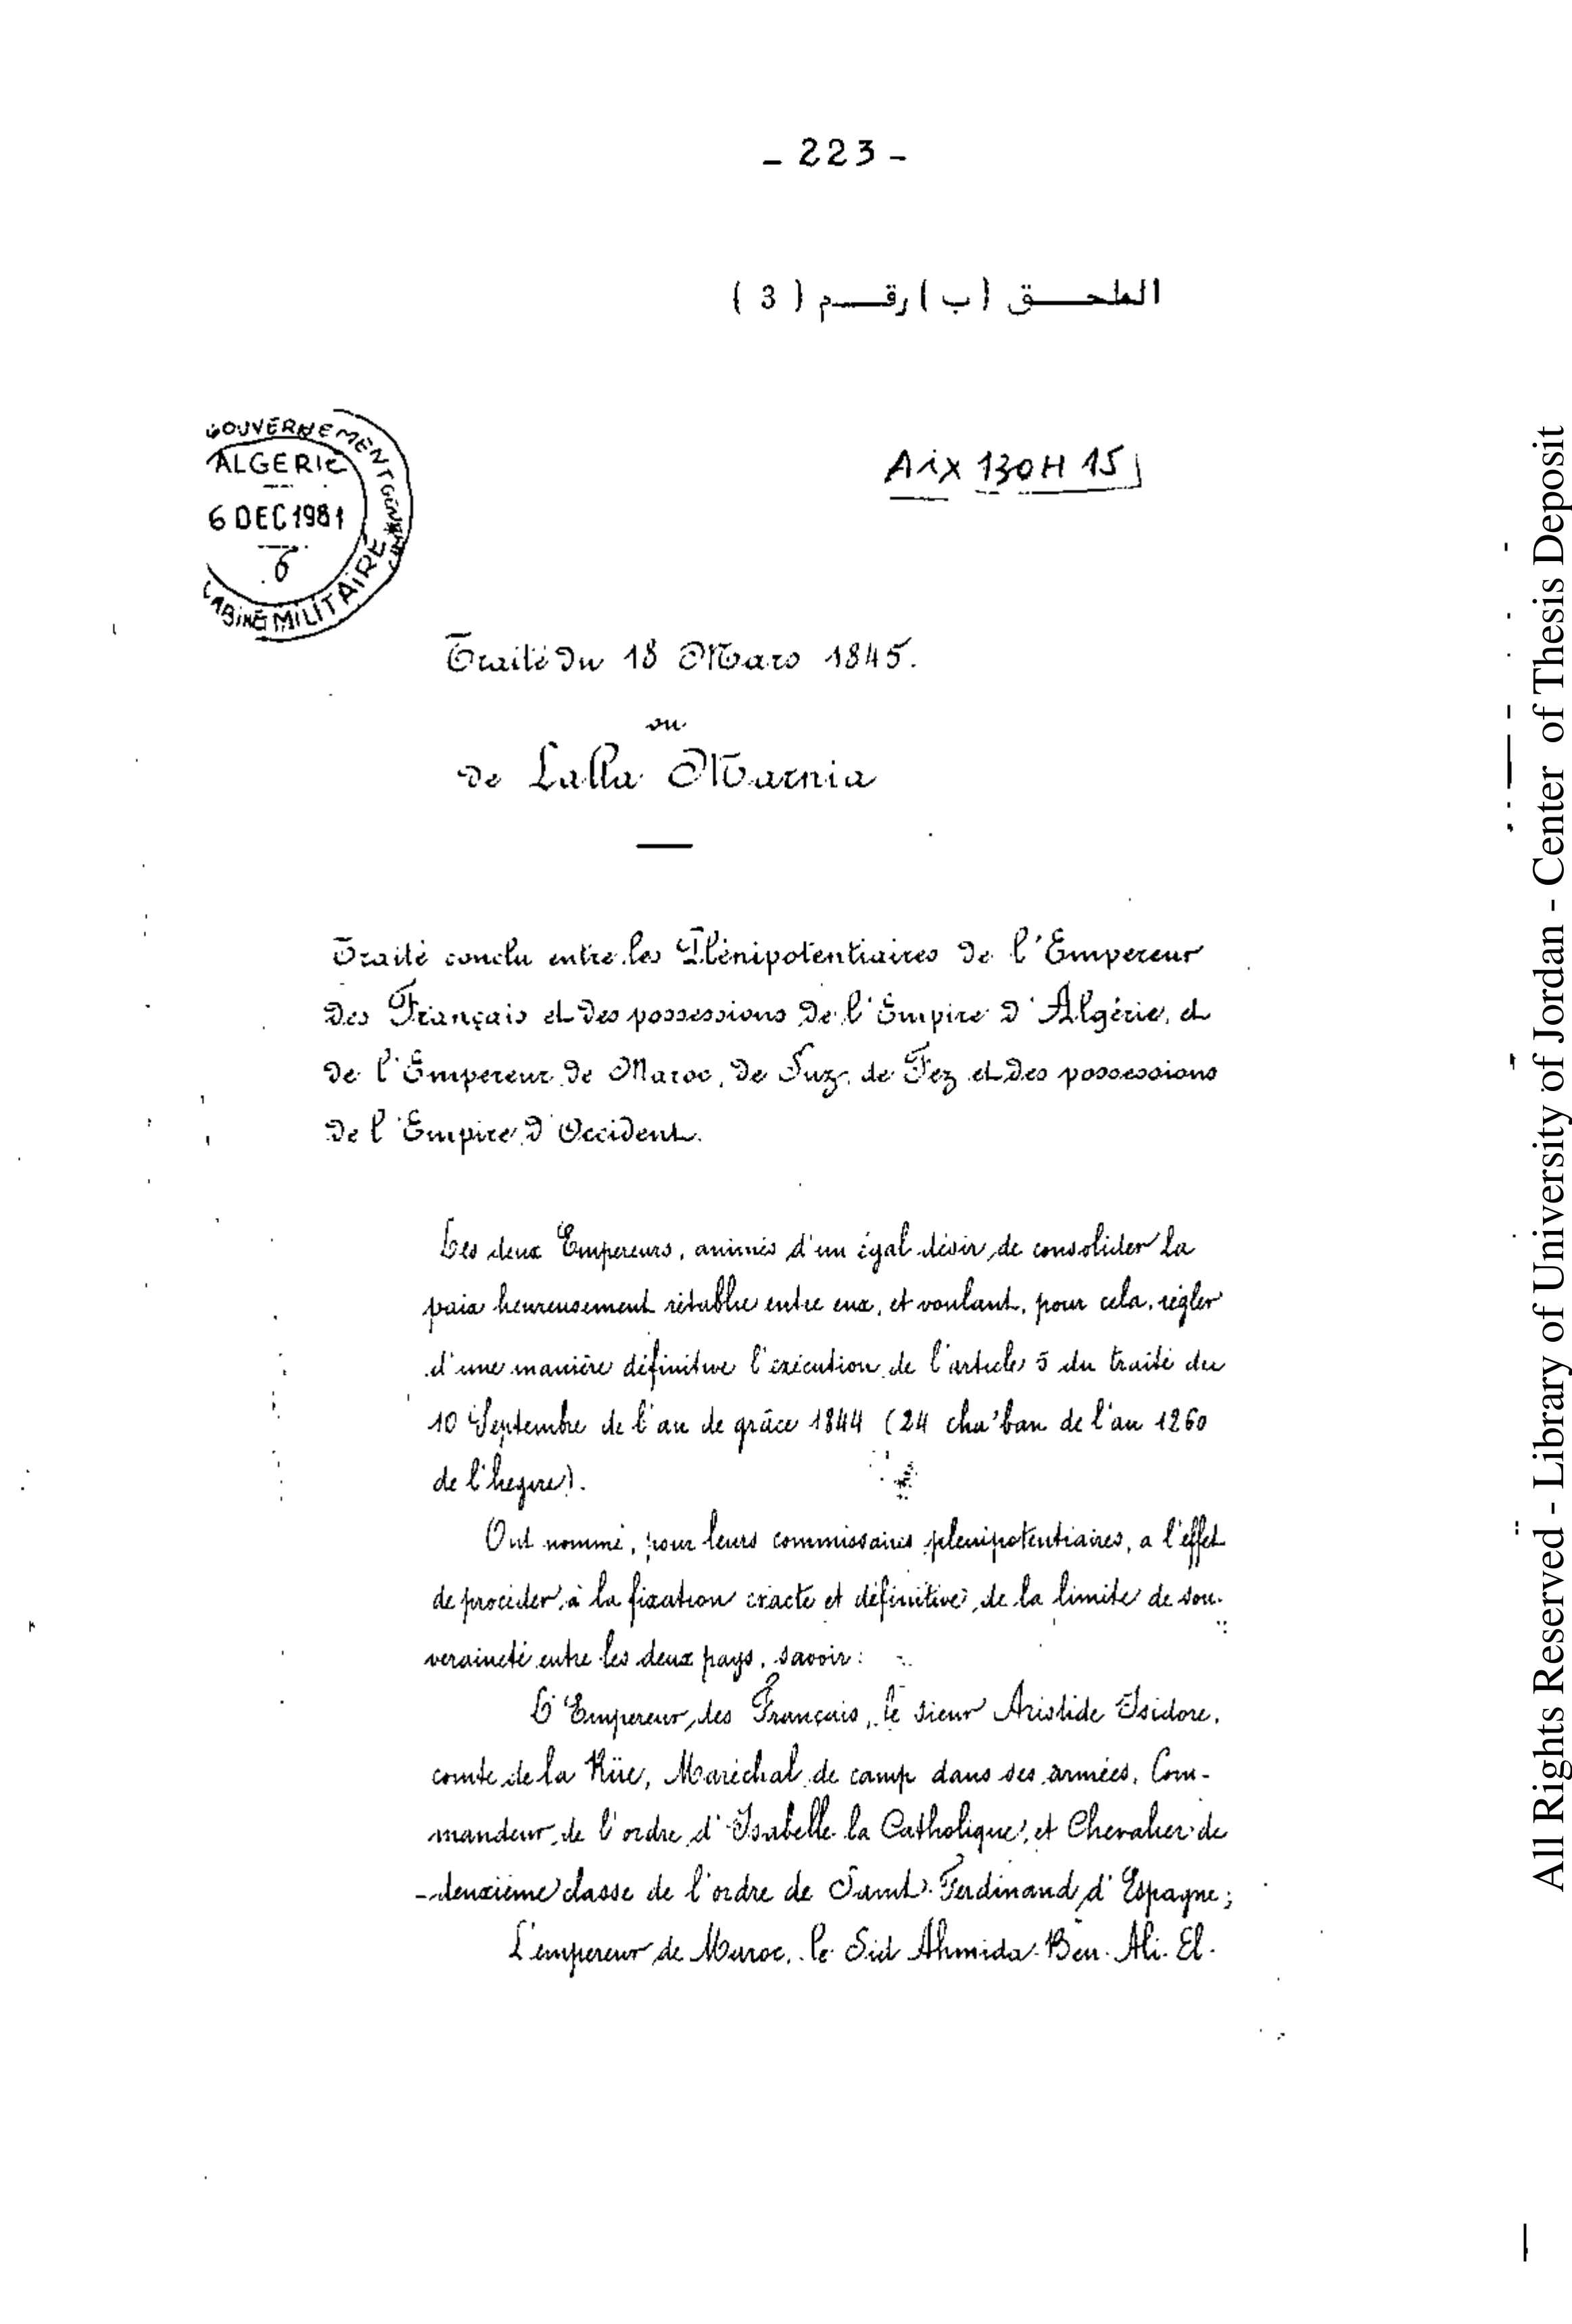 - 223 -
الملحق (ب) رقم (3)
GOUVERNEMENT GÉNÉRAL
ALGERIE
6 DEC 1981
6
CABINET MILITAIRE
Aix 130H 15
Traité du 18 Mars 1845.
ou
de Lalla Marnia
Traité conclu entre les Plénipotentiaires de l'Empereur
des Français et des possessions de l'Empire d'Algérie, et
de l'Empereur de Maroc, de Suz, de Fez et des possessions
de l'Empire d'Occident.
Les deux Empereurs, animés d'un égal désir de consolider la
paix heureusement rétablie entre eux, et voulant, pour cela, régler
d'une manière définitive l'exécution de l'article 5 du traité du
10 Septembre de l'an de grâce 1844 (24 cha'ban de l'an 1260
de l'hegire).
Ont nommé, pour leurs commissaires plenipotentiaires, a l'effet
de procéder à la fixation exacte et définitive de la limite de sou-
veraineté entre les deux pays, savoir :
L'Empereur des Français, le sieur Aristide Isidore,
comte de la Rüe, Maréchal de camp dans ses armées, Com-
mandeur de l'ordre d'Isabelle la Catholique, et Chevalier de
deuxième classe de l'ordre de Saint Ferdinand d'Espagne ;
L'empereur de Maroc, le Sid Ahmida-Ben-Ali-El-
All Rights Reserved - Library of University of Jordan - Center of Thesis Deposit